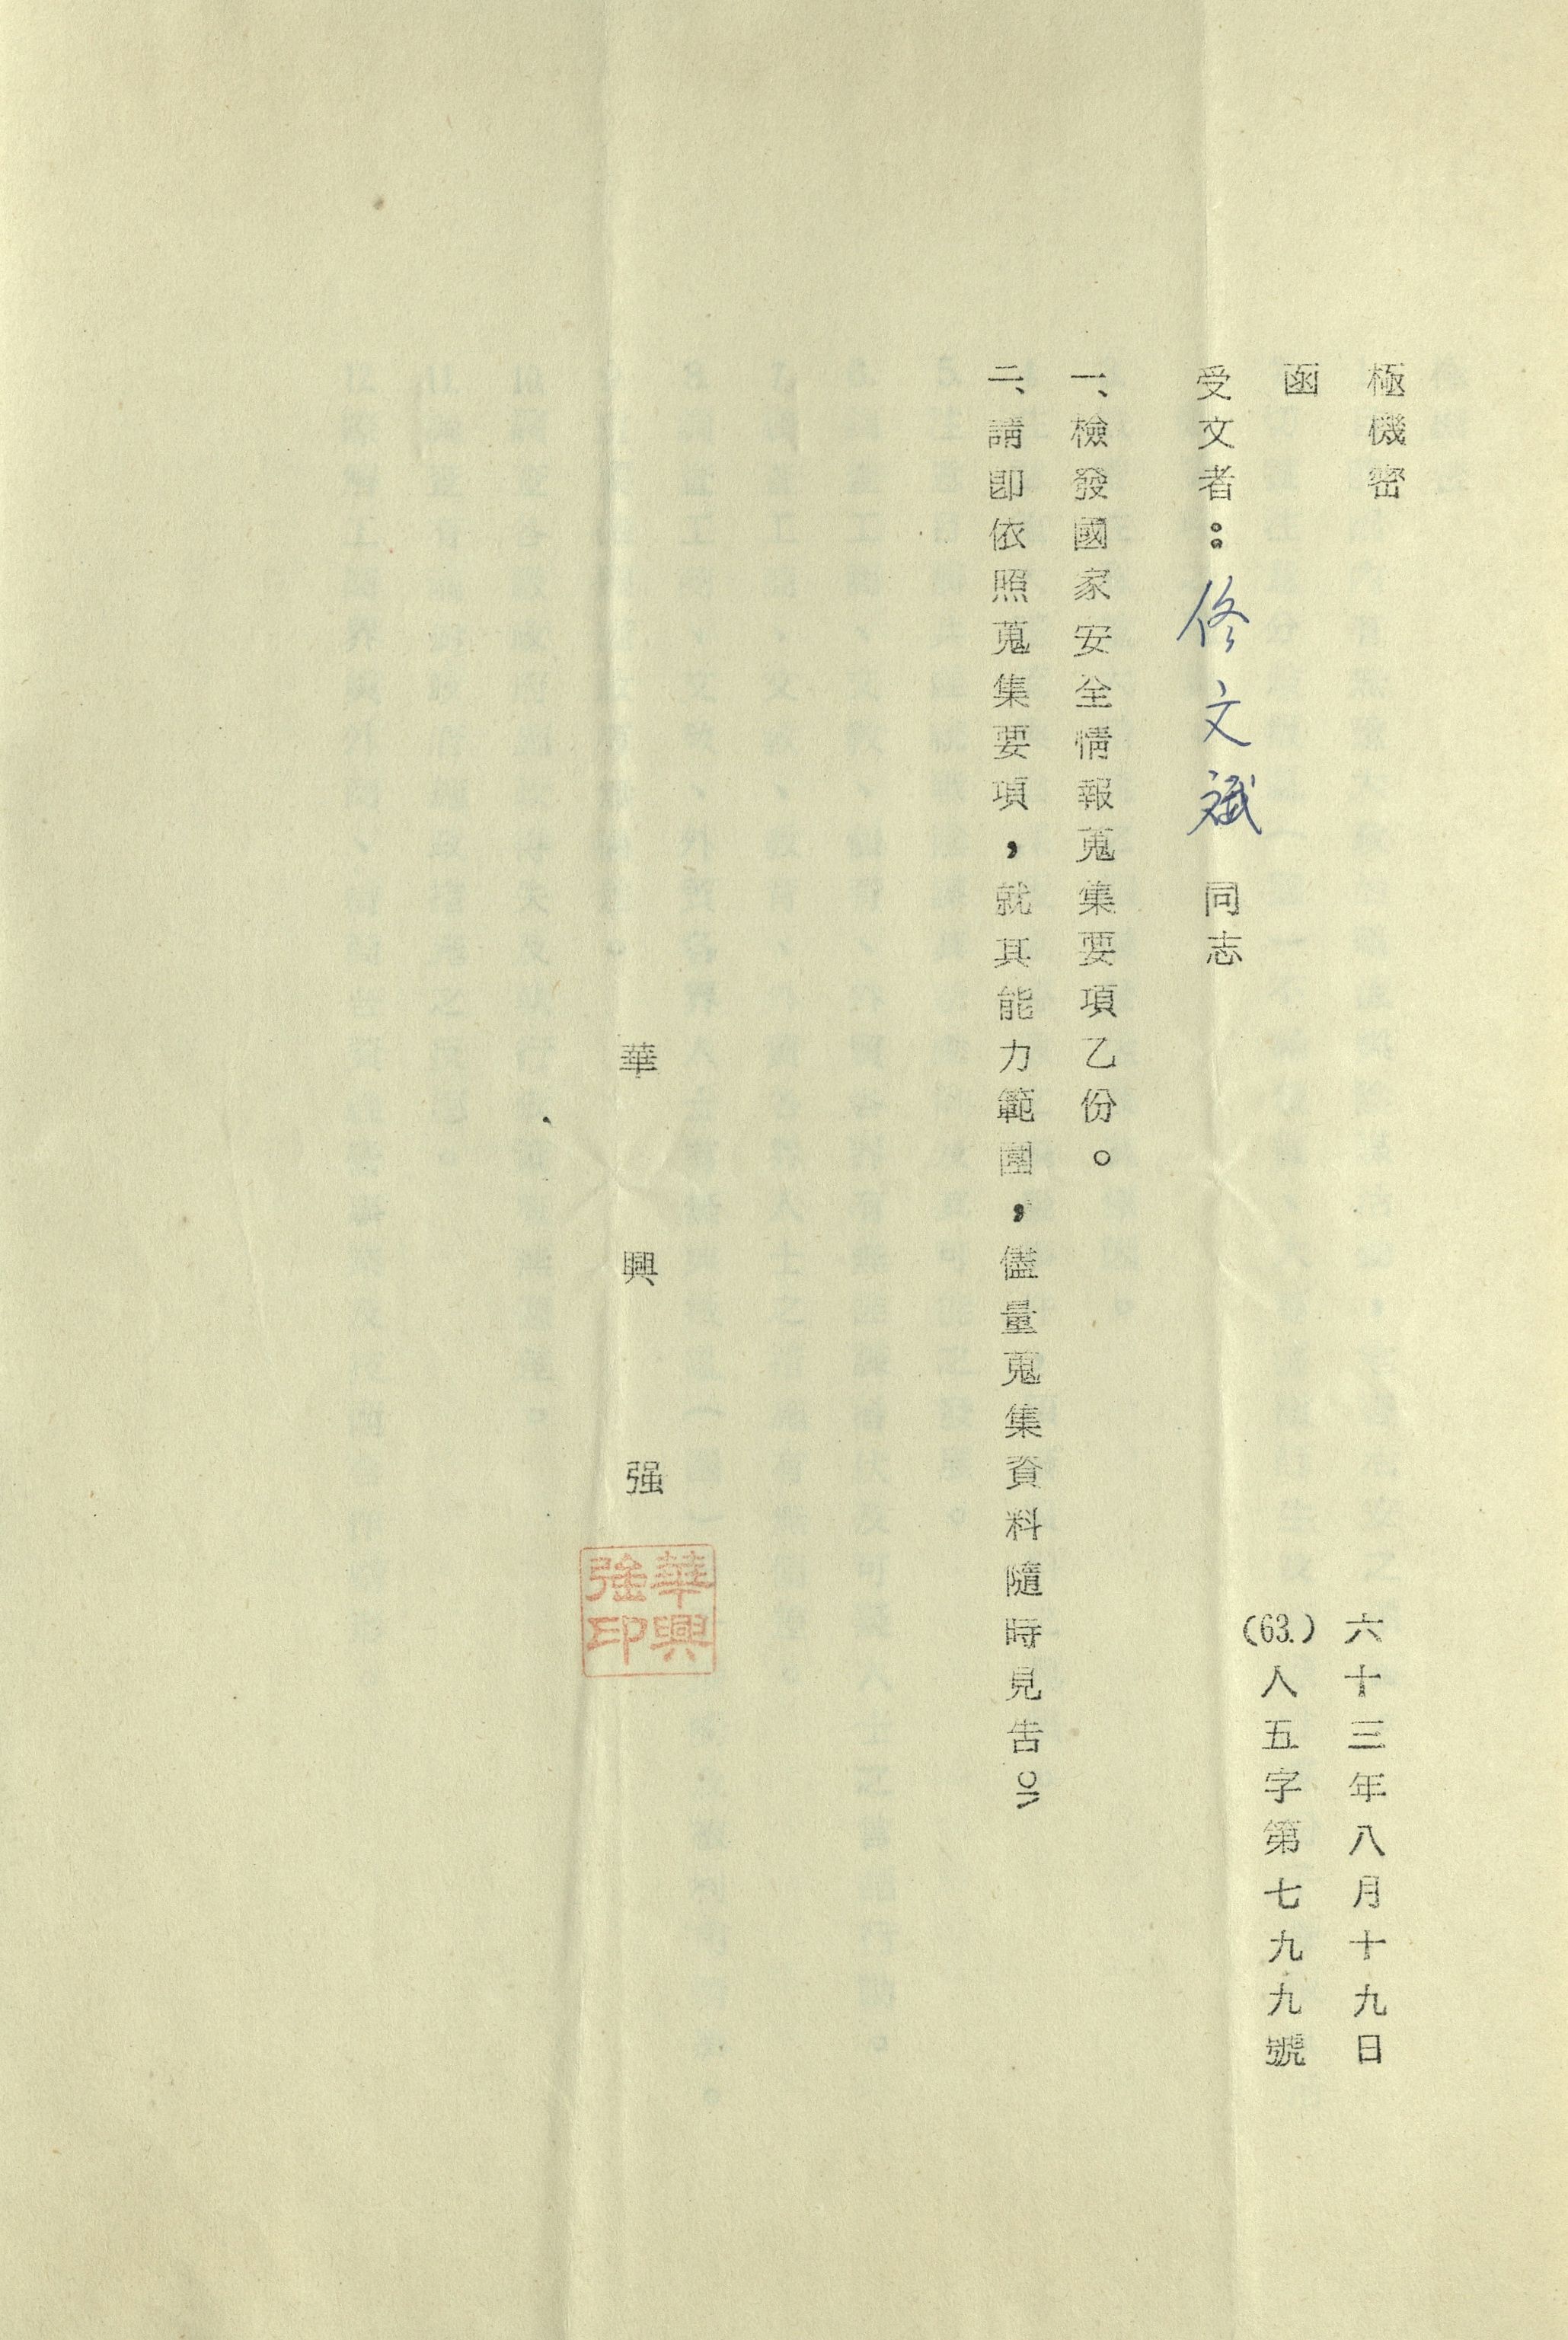 極機密
六十三年八月十九日
函
(63.)人五字第七九九號
受文者：佟文斌 同志
一、檢發國家安全情報蒐集要項乙份。
二、請卽依照蒐集要項，就其能力範圍，儘量蒐集資料隨時見告。
華興强
華興強印